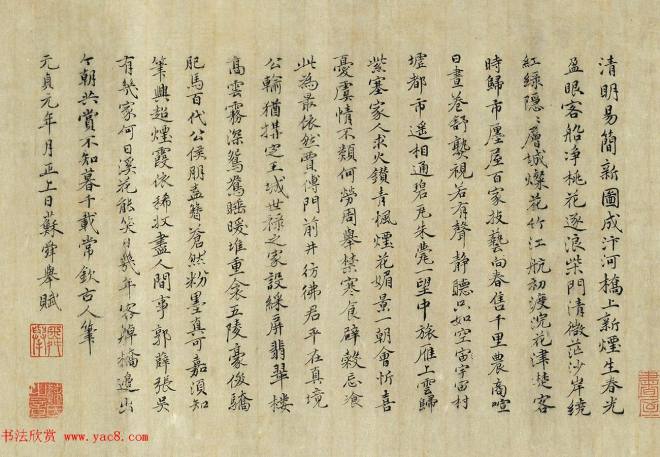 清明易簡新圖成汴河橋上新煙生春光
盈眼客船淨桃花逐浪柴門清微茫沙岸繞
紅綠隱〻層城燦花竹江航初渡浣花津楚客
時歸市廛屋百家技藝向春售千里農商喧
日晝卷舒
視若有聲靜聽只如空宙宇田村
墟都市遥相通碧瓦朱甍一望中旅雁上雲歸
紫塞家人求火鑽青楓煙花媚景一朝會忻喜
憂虞情不類何勞周舉禁寒食辟穀忌飡
此為最依然賈傅門前井彷彿君平在真境
公輸猶
定王城世祿之家設綵屏翡翠樓
高雲霧深鴛鴦睡暖堆重衾五陵豪俊驕
肥馬百代公侯朋盍簪蒼然粉墨真可嘉須知
筆興超煙霞依稀
盡人間事郭薛張吳
有幾家何日溪花能笑日幾年客
橋邊出
今朝共賞不知暮千載常欽古人筆
元貞元年月正上日蘇舜舉賦
书法欣赏 www.yac8.com